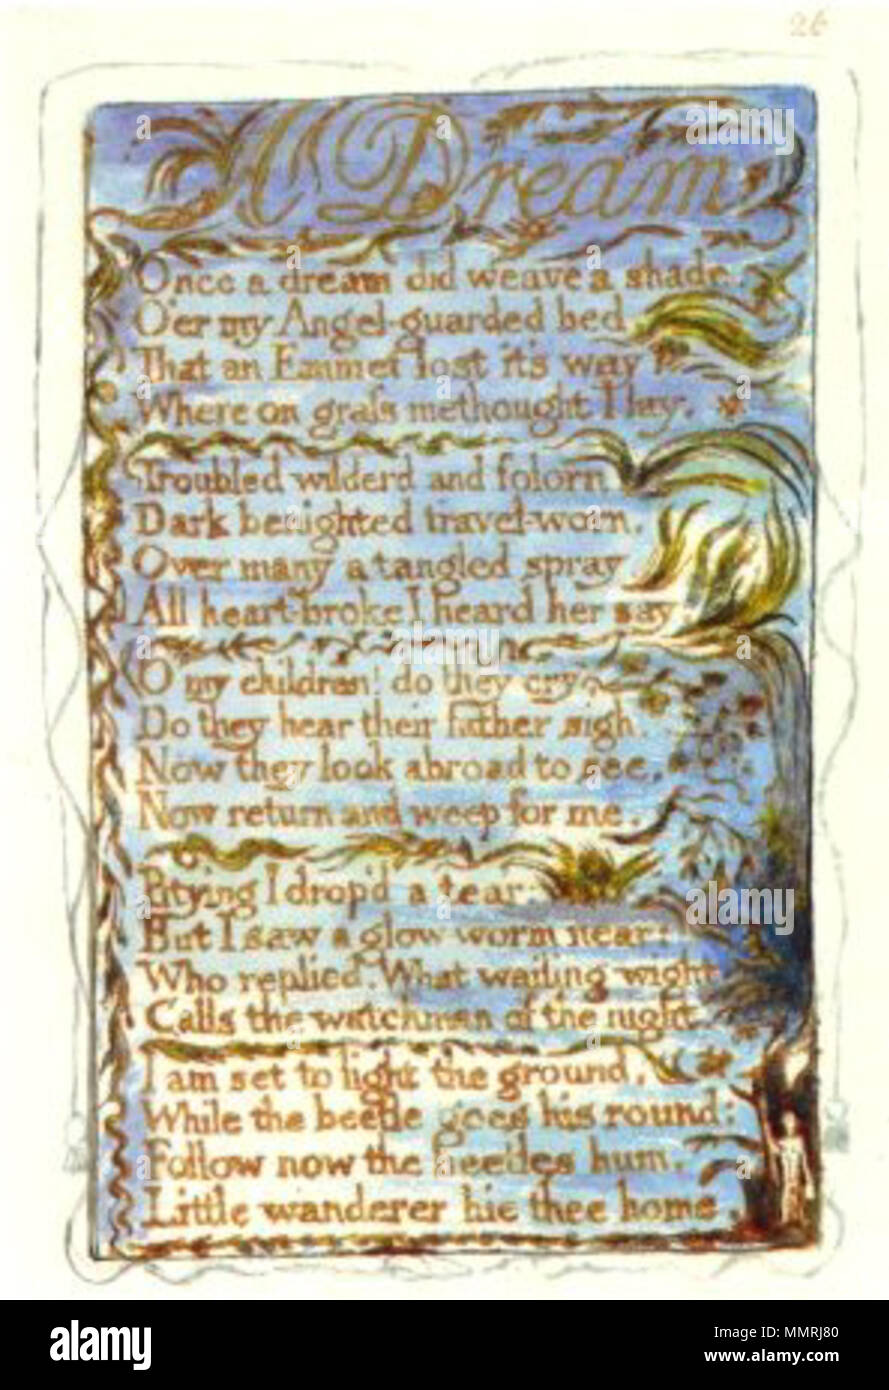 26
A Dream
Once a dream did weave a shade,
O'er my Angel-guarded bed,
That an Emmet lost it's way
Where on grass methought I lay.
Troubled wilderd and folorn
Dark benighted travel-worn,
Over many a tangled spray
All heart-broke I heard her say.
O my children! do they cry,
Do they hear their father sigh.
Now they look abroad to see,
Now return and weep for me.
Pitying I drop'd a tear:
But I saw a glow-worm near:
Who replied. What wailing wight
Calls the watchman of the night.
I am set to light the ground,
While the beetle goes his round:
Follow now the beetles hum,
Little wanderer hie thee home.
alamy
Image ID: MMRJ80
www.alamy.com